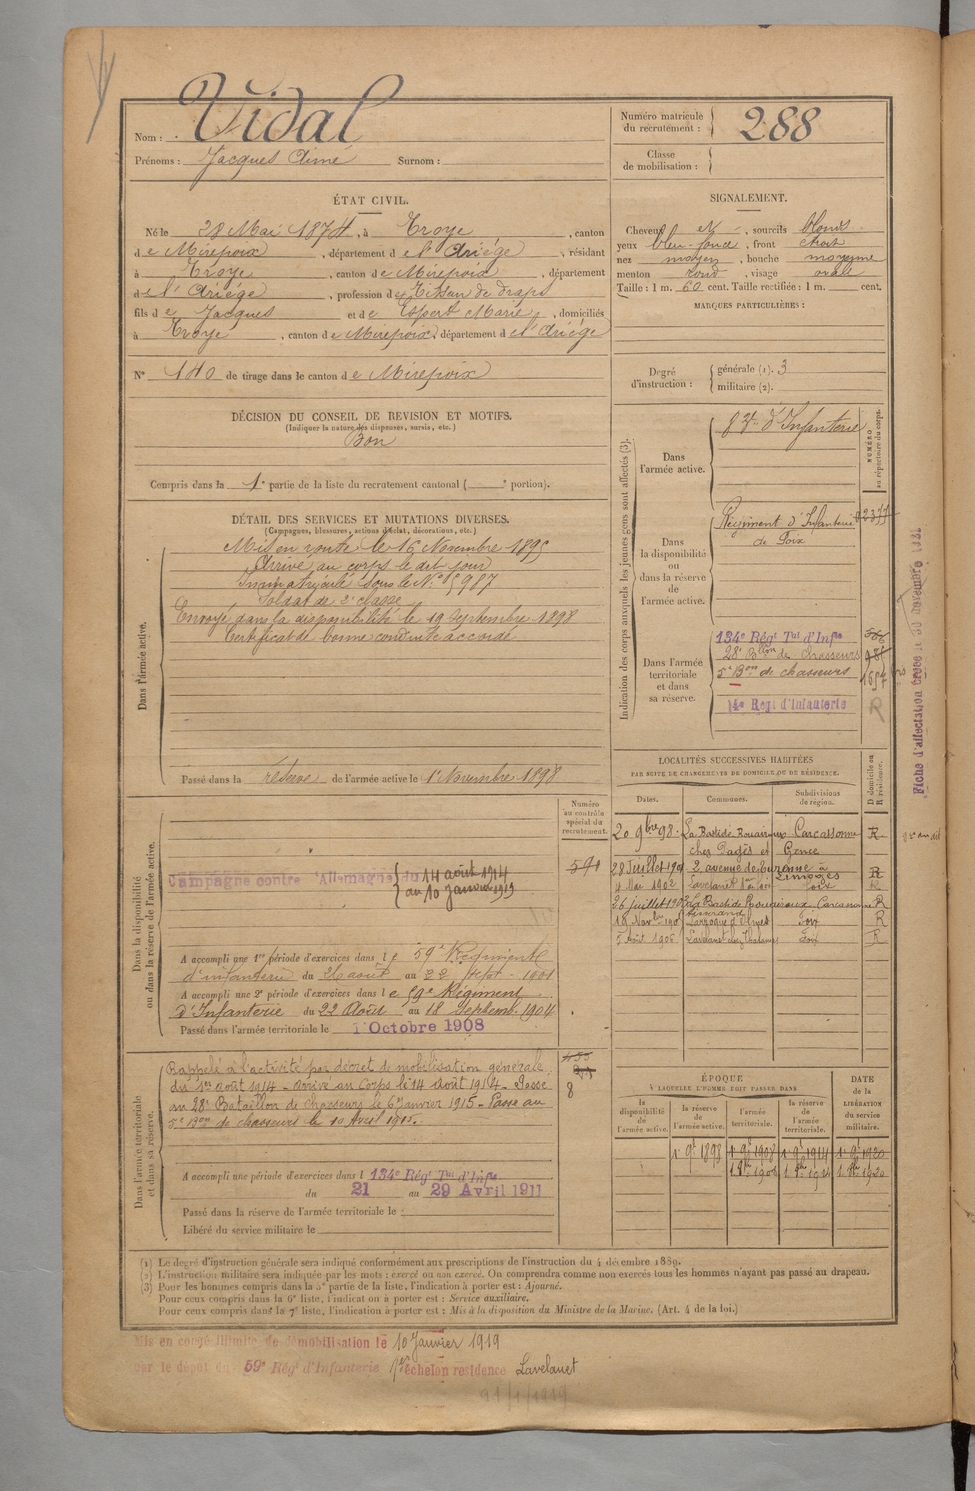 Nom : Vidal
Prénoms : Jacques Aimé Surnom :
Numéro matricule du recrutement : 288
Classe de mobilisation :
ÉTAT CIVIL.
Né le 28 Mai 1874, à Troye, canton
de Mirepoix, département de l'Ariége, résidant
à Troye, canton de Mirepoix, département
de l'Ariége, profession de Tisseur de draps
fils de Jacques et de Espert Marie, domiciliés
à Troye, canton de Mirepoix, département de l'Ariége
N° 140 de tirage dans le canton de Mirepoix
SIGNALEMENT.
Cheveux et, sourcils blonds
yeux bleu-foncé, front étroit
nez moyen, bouche moyenne
menton rond, visage ovale
Taille : 1 m. 60 cent. Taille rectifiée : 1 m. cent.
MARQUES PARTICULIÈRES :
Degré d'instruction : générale (1). 3
militaire (2).
DÉCISION DU CONSEIL DE REVISION ET MOTIFS.
(Indiquer la nature des dispenses, sursis, etc.)
Bon
Compris dans la 1e partie de la liste du recrutement cantonal ( portion).
DÉTAIL DES SERVICES ET MUTATIONS DIVERSES.
(Campagnes, blessures, actions d'éclat, décorations, etc.)
Dans l'armée active.
Mis en route le 16 Novembre 1895
Arrivé au corps le dit jour
Immatriculé sous le N°
Soldat de 2e classe
Envoyé dans la disponibilité le 19 Septembre 1898
Certificat de bonne conduite accordé
Passé dans la réserve de l'armée active le 1 Novembre 1898
Indication des corps auxquels les jeunes gens sont affectés (3).
NUMÉRO au répertoire du corps.
Dans l'armée active.
d'Infanterie
Dans la disponibilité ou dans la réserve de l'armée active.
Régiment d'Infanterie
de Foix
Dans l'armée territoriale et dans sa réserve.
134e Régt Tal d'Infie
28e Bllon de chasseurs
5e Bon de chasseurs
14e Régt d'Infanterie
R
LOCALITÉS SUCCESSIVES HABITÉES
PAR SUITE DE CHANGEMENTS DE DOMICILE OU DE RÉSIDENCE.
Dates. Communes. Subdivisions de région. D domicile ou R résidence.
20 9bre 98. La Bastide Rouairoux Carcassonne R
chez Pagès et
28 Juillet 1901 2, avenue de Turenne à Limoges R
4 Mai 1902 Lavelanet Foix R
26 Juillet La Bastide Rouairoux Carcassonne R
18 Nov Laroque d'Olmes Foix R
5 Août Lavelanet Foix R
Numéro au contrôle spécial du recrutement.
Dans la disponibilité ou dans la réserve de l'armée active.
Campagne contre l'Allemagne du 14 août 1914
au 10 Janvier 1919
A accompli une 1re période d'exercices dans le 59e Régiment
d'infanterie du 26 août au 22 Sept. 1901
A accompli une 2e période d'exercices dans le 59e Régiment
d'Infanterie du 22 Août au 18 Septemb. 1904
Passé dans l'armée territoriale le 1 Octobre 1908
Dans l'armée territoriale et dans sa réserve.
Rappelé à l'activité par décret de mobilisation générale
du 1er août 1914 - arrivé au Corps le 14 Août 1914 - Passé
au 28e Bataillon de chasseurs le 6 Janvier 1915 - Passé au
5e Bon de chasseurs le 10 Avril 1915.
8
A accompli une période d'exercices dans l 134e Régt Tal d'Infie
du 21 au 29 Avril 1911
Passé dans la réserve de l'armée territoriale le
Libéré du service militaire le
ÉPOQUE
À LAQUELLE L'HOMME DOIT PASSER DANS
la disponibilité de l'armée active. la réserve de l'armée active. l'armée territoriale. la réserve de l'armée territoriale.
DATE de la LIBÉRATION du service militaire.
1 9e 1898 1 9e 1908 1 9e 1914 1 9e 1920
(1) Le degré d'instruction générale sera indiqué conformément aux prescriptions de l'instruction du 4 décembre 1889.
(2) L'instruction militaire sera indiquée par les mots : exercé ou non exercé. On comprendra comme non exercés tous les hommes n'ayant pas passé au drapeau.
(3) Pour les hommes compris dans la 5e partie de la liste, l'indication à porter est : Ajourné.
Pour ceux compris dans la 6e liste, l'indication à porter est : Service auxiliaire.
Pour ceux compris dans la 7e liste, l'indication à porter est : Mis à la disposition du Ministre de la Marine. (Art. 4 de la loi.)
Mis en congé illimité de démobilisation le 10 Janvier 1919
par le dépôt du 59e Régt d'Infanterie 1er échelon résidence Lavelanet